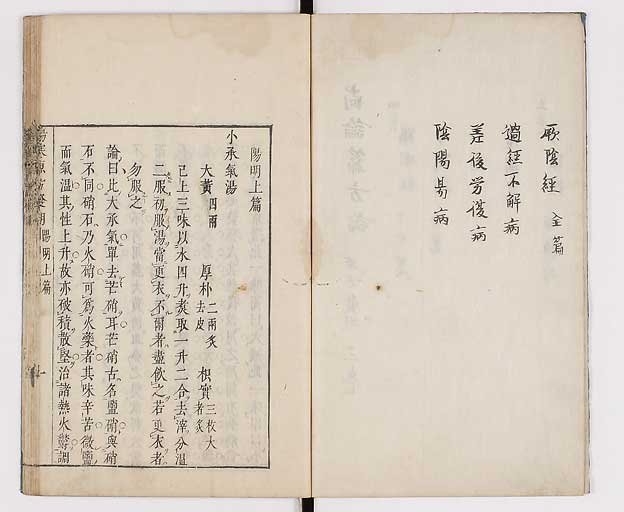 厥陰經 全篇
過經不解病
差後労復病
陰陽易病
陽明上篇
小承氣湯
大黃四兩 厚朴二兩炙去皮 枳實三枚大者炙
已上三味以水四升煑取一升二合去滓分溫
二服初服湯當更衣不爾者盡飲之若更衣者
勿服之
論曰此大承氣單去芒硝耳芒硝古名鹽硝與硝
石不同硝石乃火硝可爲火藥者其味辛苦微鹹
而氣溫其性上升故亦破積散堅治諸熱火鬱調
陽明上篇